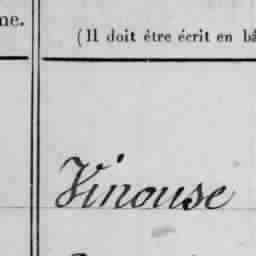 ne.
(Il doit être écrit en bâ
Vinouse